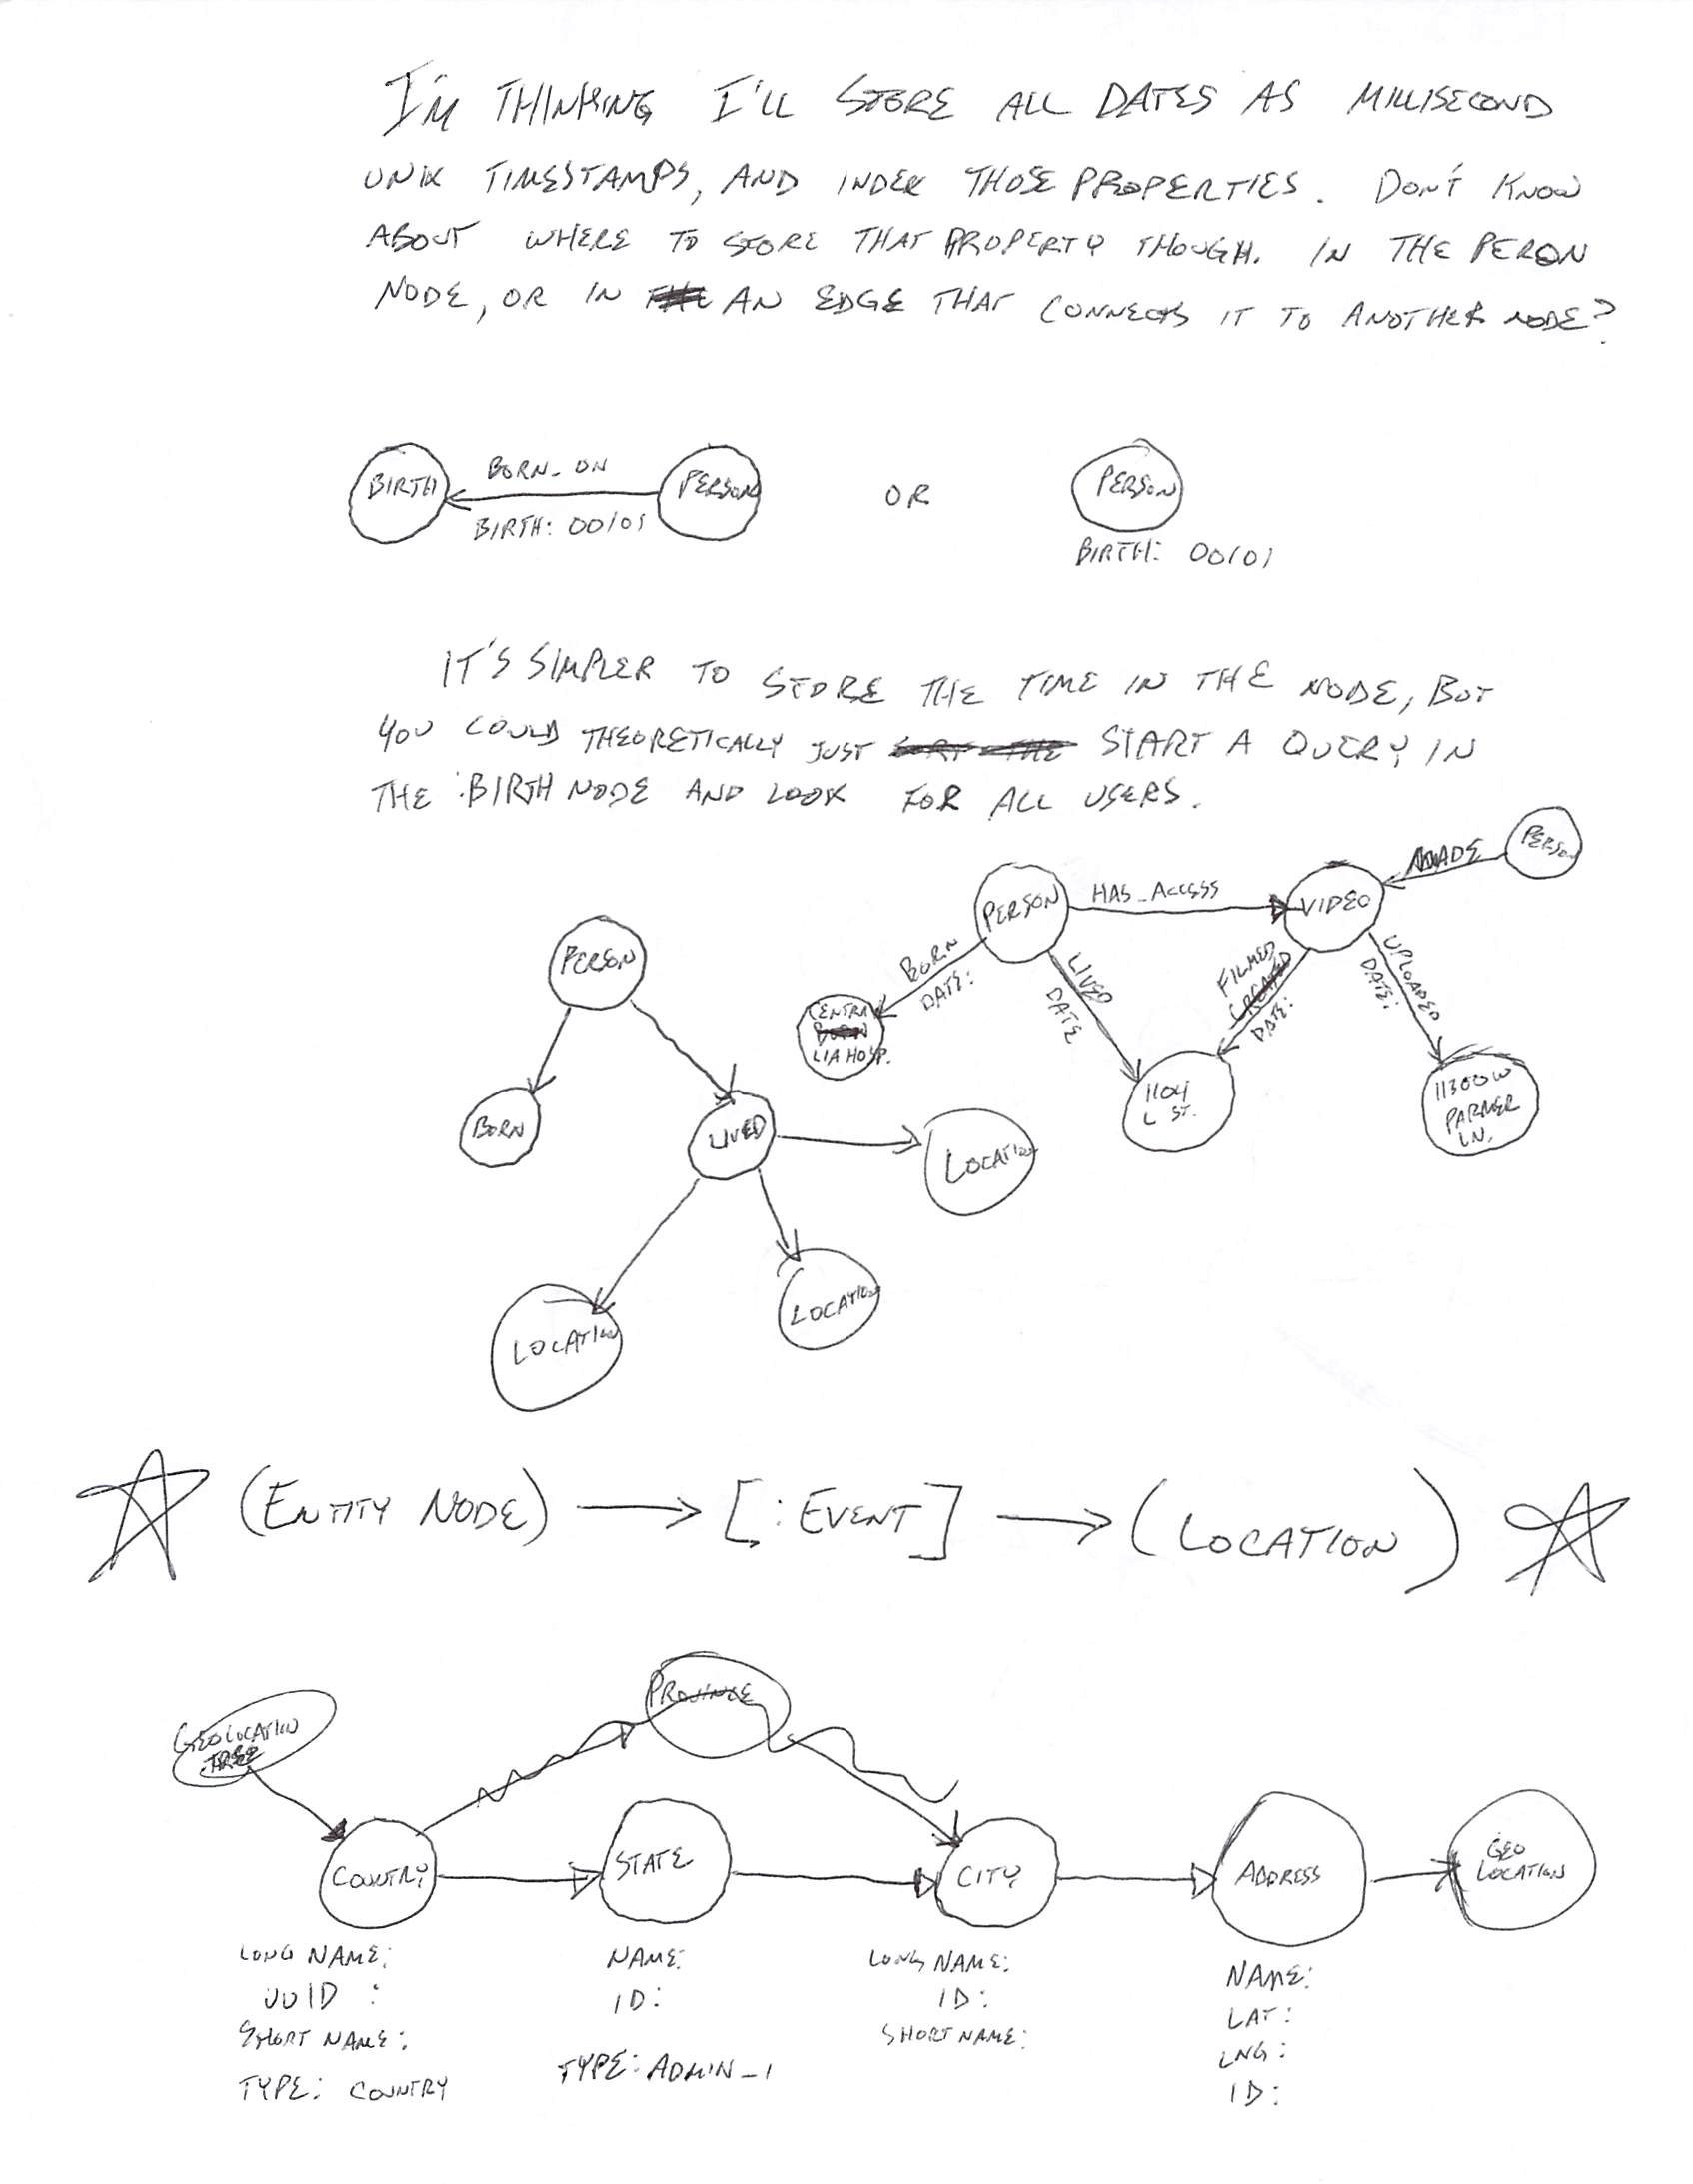 I'M THINKING I'LL STORE ALL DATES AS MILLISECOND
UNIX TIMESTAMPS, AND INDEX THOSE PROPERTIES. DON'T KNOW
ABOUT WHERE TO STORE THAT PROPERTY THOUGH. IN THE PERON
NODE, OR IN AN EDGE THAT CONNECTS IT TO ANOTHER NODE?
BIRTH
BORN_ON
BIRTH: 00101
PERSON
OR
PERSON
BIRTH: 00101
IT'S SIMPLER TO STORE THE TIME IN THE NODE, BUT
YOU COULD THEORETICALLY JUST START A QUERY IN
THE :BIRTH NODE AND LOOK FOR ALL USERS.
PERSON
BORN
LIVED
LOCATION
LOCATION
LOCATION
PERSON
HAS_ACCESS
VIDEO
MADE
PERSON
BORN
DATE:
CENTRA
LIA HOSP.
LIVED
DATE
FILMED
CREATED
DATE:
UPLOADED
DATE:
1104
L ST.
11300 W
PARMER
LN.
(ENTITY NODE) → [:EVENT] → (LOCATION)
GEOLOCATION
TREE
PROVINCE
COUNTRY
STATE
CITY
ADDRESS
GEO
LOCATION
LONG NAME:
UUID :
SHORT NAME:
TYPE: COUNTRY
NAME:
ID:
TYPE: ADMIN_1
LONG NAME:
ID:
SHORT NAME:
NAME:
LAT:
LNG:
ID: